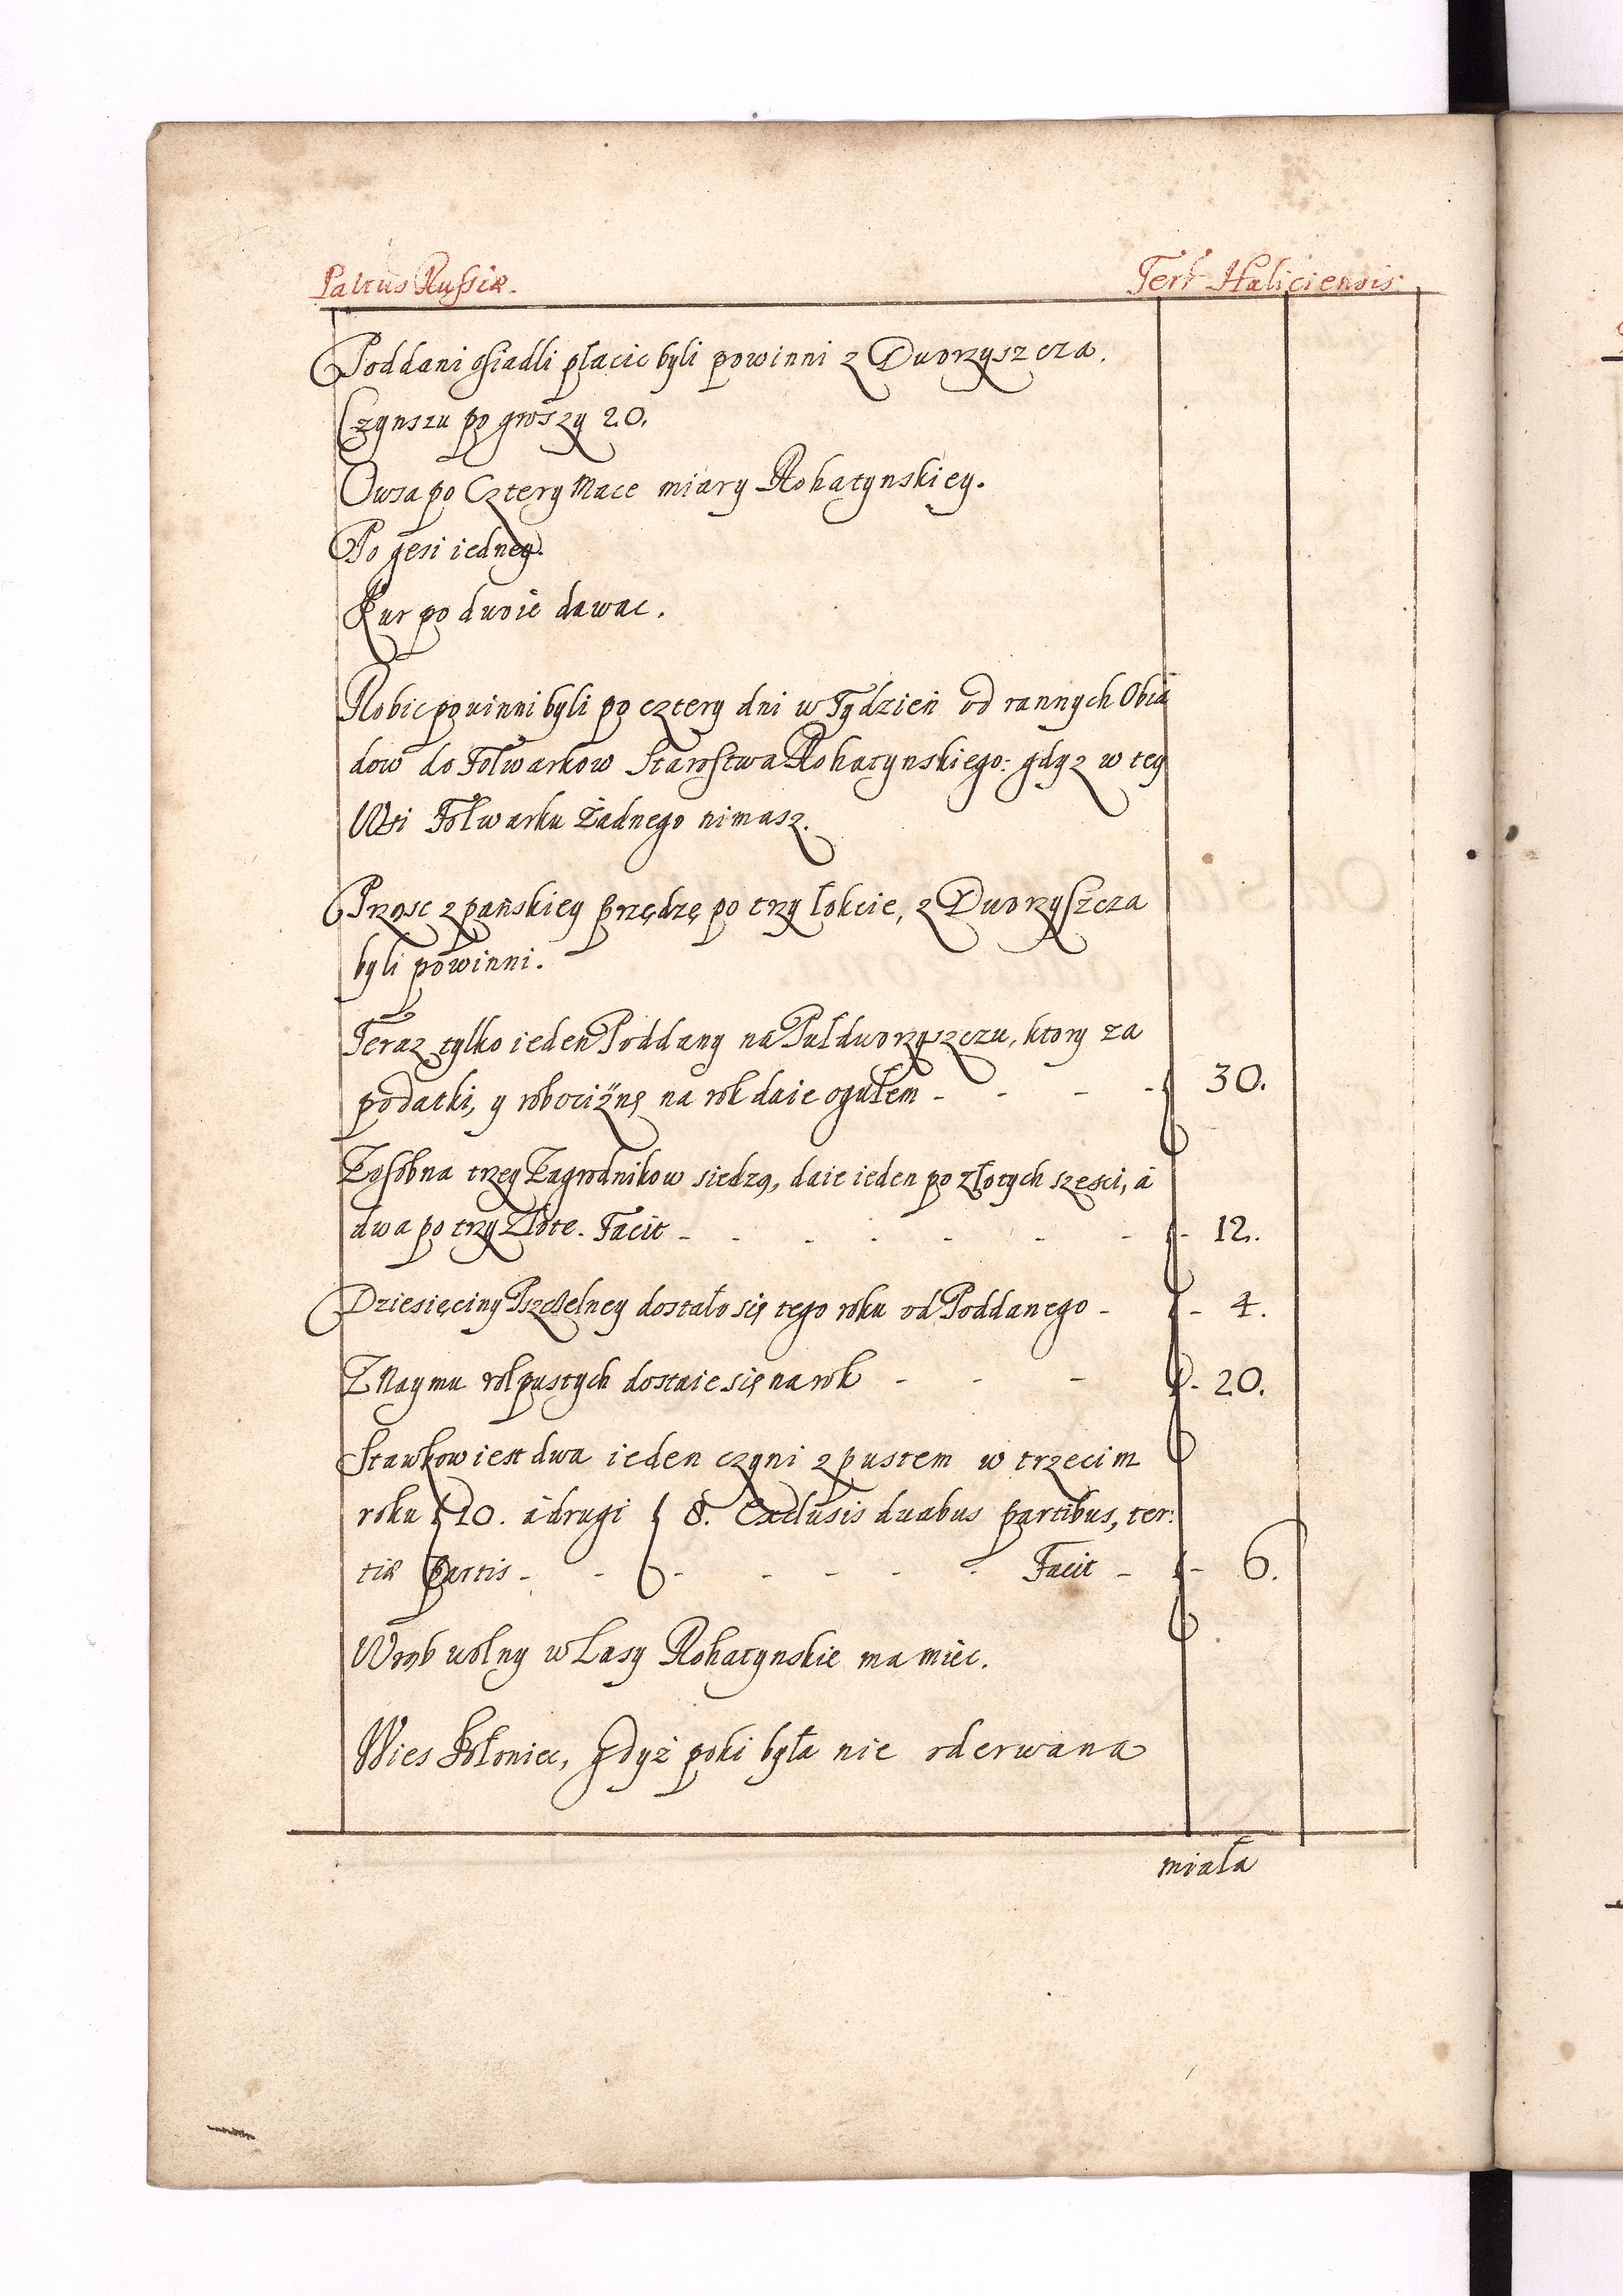 Paltus Russiæ. Terr Haliciensis:
Poddani osiadli płacic byli powinni z Dworzyszcza.
Czynszu po groszy 20.
Owsa po Cztery Mace miary Rohatynskiey.
Po gęsi iedney.
Kur po dwoie dawac.
Robic powinni byli po cztery dni w Tydzień od rannych Obia
dow do Folwarkow Starostwa Rohatynskiego: gdyz w tey
Wsi Folwarku Żadnego nimasz.
Prząsc z pańskiey przędzę po trzy łokcie, z Dworzyszcza
byli powinni.
Teraz tylko ieden Poddany na Puldworzyszczu, ktory za
podatki, y robociznę na rok daie ogułem - - - - 30.
Zosobna trzey Zagrodnikow siedzą, daie ieden po złotych szesci, á
dwa po trzy Złote. Facit - - - - - - - - 12.
Dziesięciny Pszczelney dostało się tego roku od Poddanego - - 4.
Z Naymu rol pustych dostaie się na rok - - - - 20.
Stawkow iest dwa ieden czyni z pustem w trzecim
roku f 10. á drugi f 8. Exclusis duabus partibus, ter:
tiæ partis - - - - - - - Facit - - 6.
Wrąb wolny w Lasy Rohatynskie ma miec.
Wies Fołoniec, Gdyż poki była nie oderwana
miała